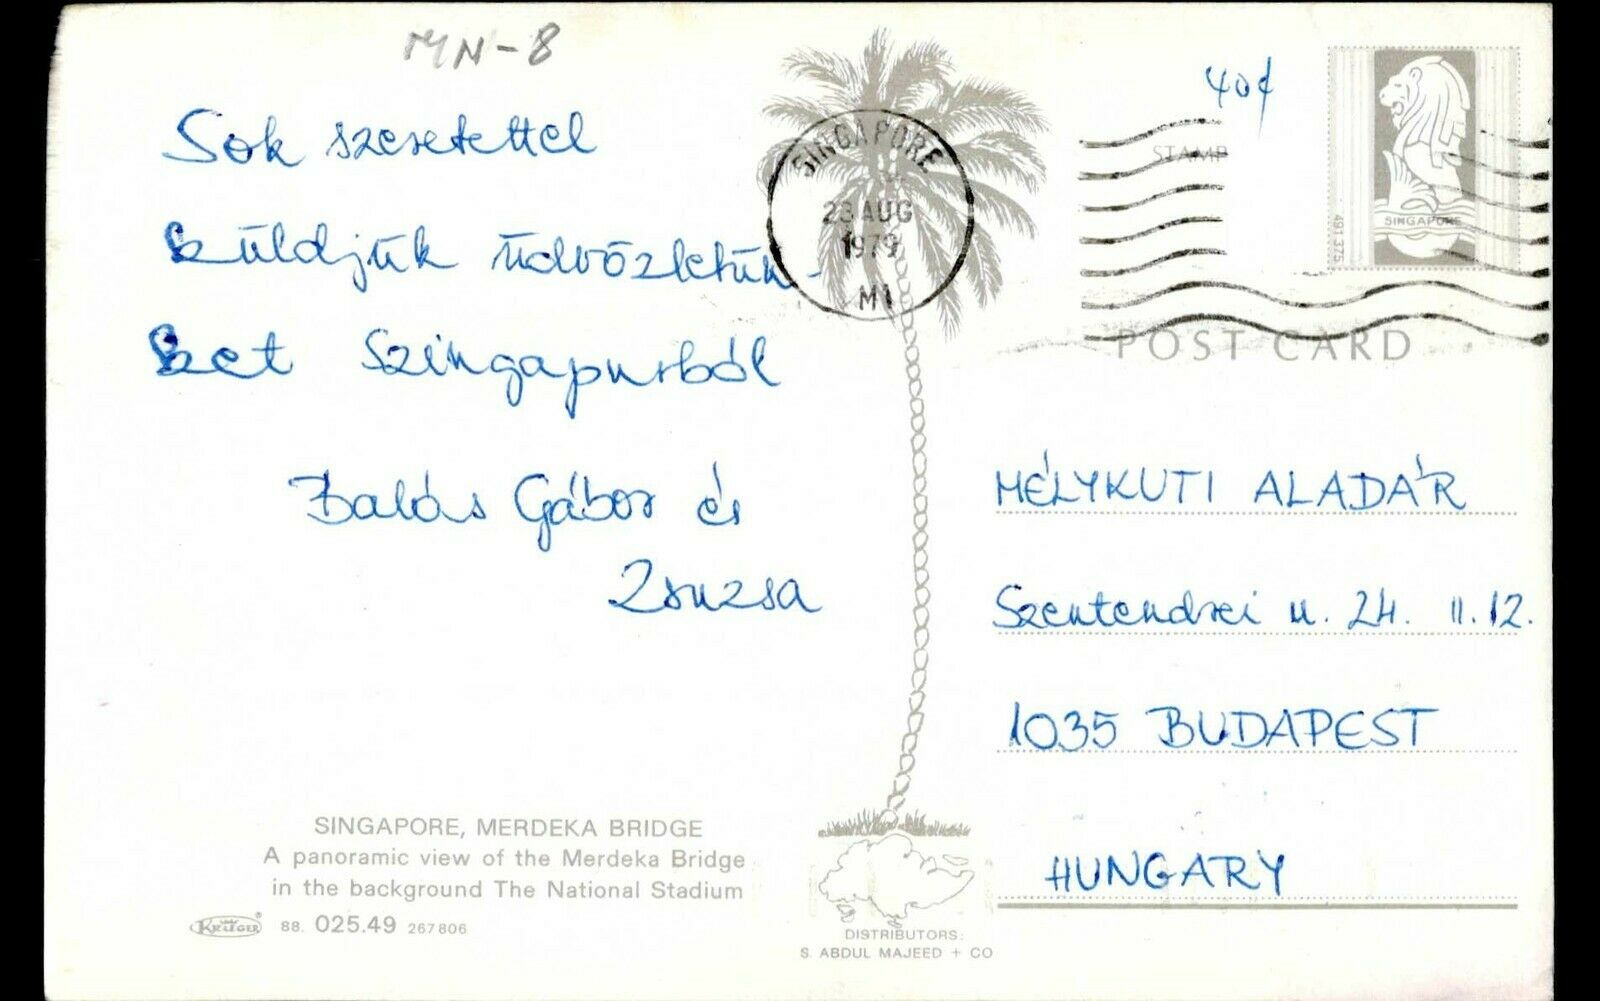 MN-8
Sok szeretettel
küldjük üdvözletün-
ket Szingapurból
Balás Gábor és
Zsuzsa
SINGAPORE, MERDEKA BRIDGE
A panoramic view of the Merdeka Bridge
in the background The National Stadium
KRÜGER 88. 025.49 267806
SINGAPORE
28 AUG
1979
M1
40¢
STAMP
SINGAPORE
491 375
POST CARD
MÉLYKUTI ALADÁR
Szentendrei u. 24. II. 12.
1035 BUDAPEST
HUNGARY
DISTRIBUTORS:
S. ABDUL MAJEED + CO